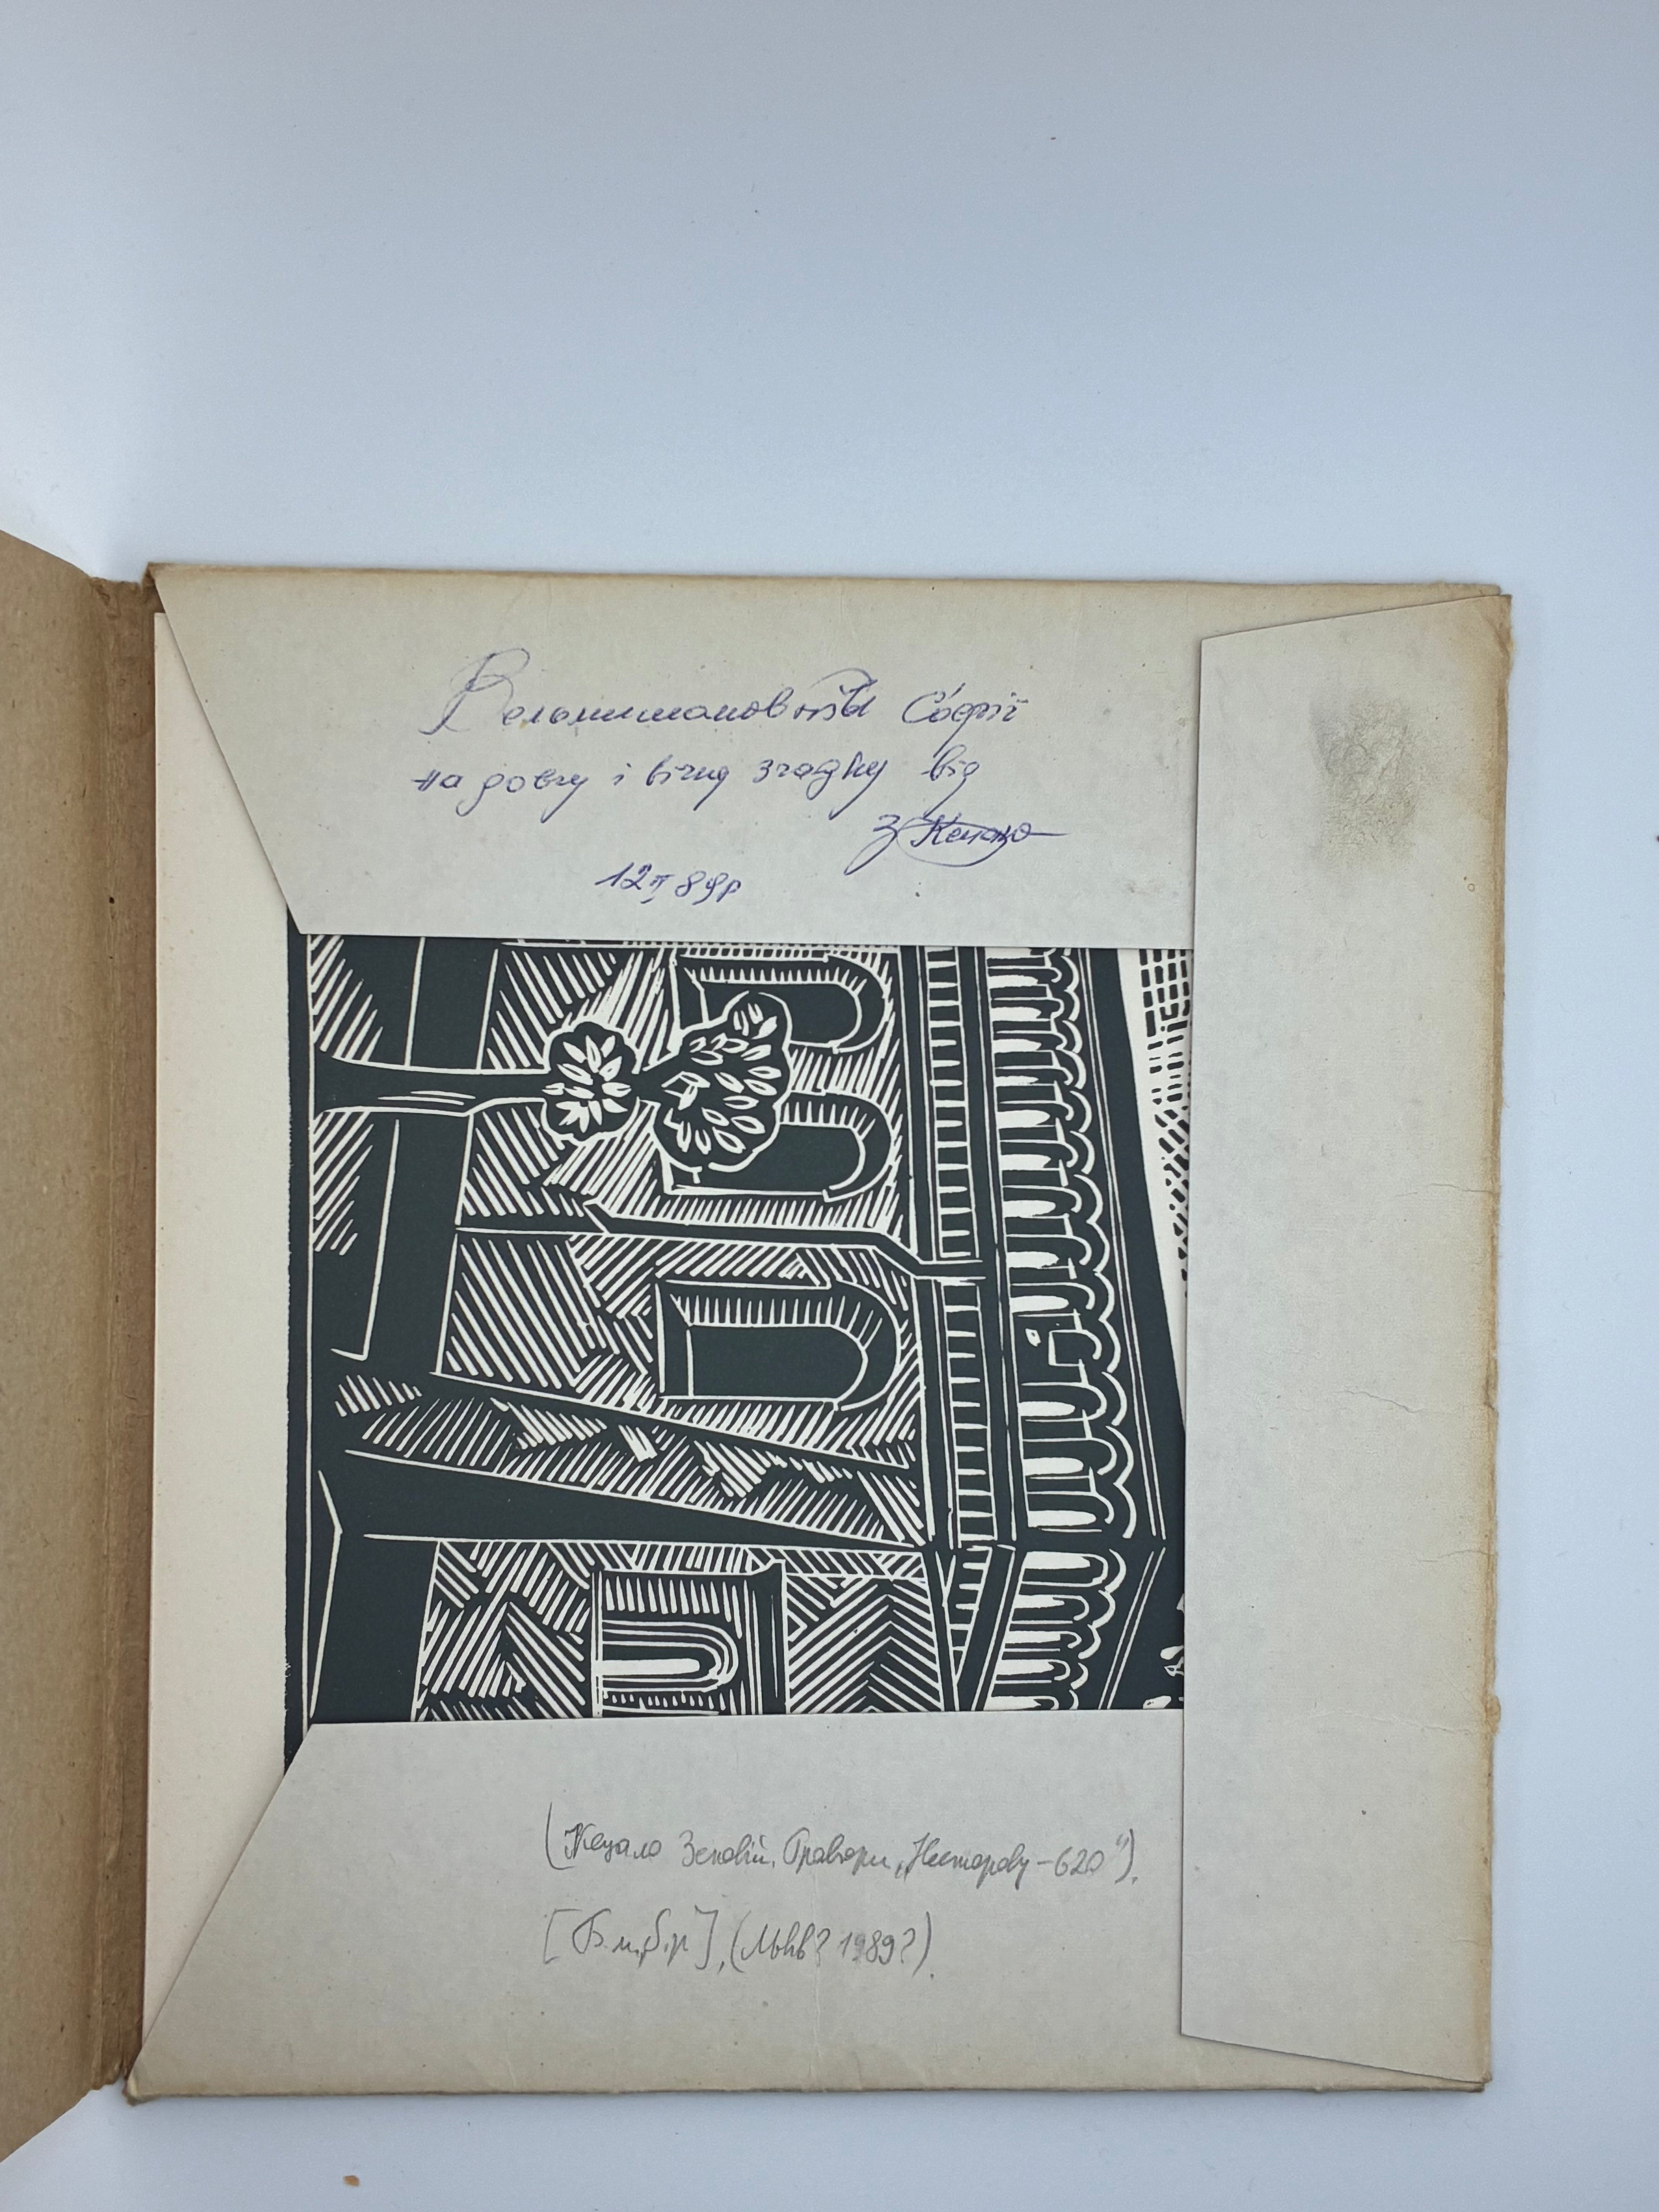 Софії
на довгу і вічну згадку від
З Кецало
12 II 89р
(Кецало Зеновій. Гравюри „Нестерову-620").
[Б.м., б.р], (Львів? 1989?).